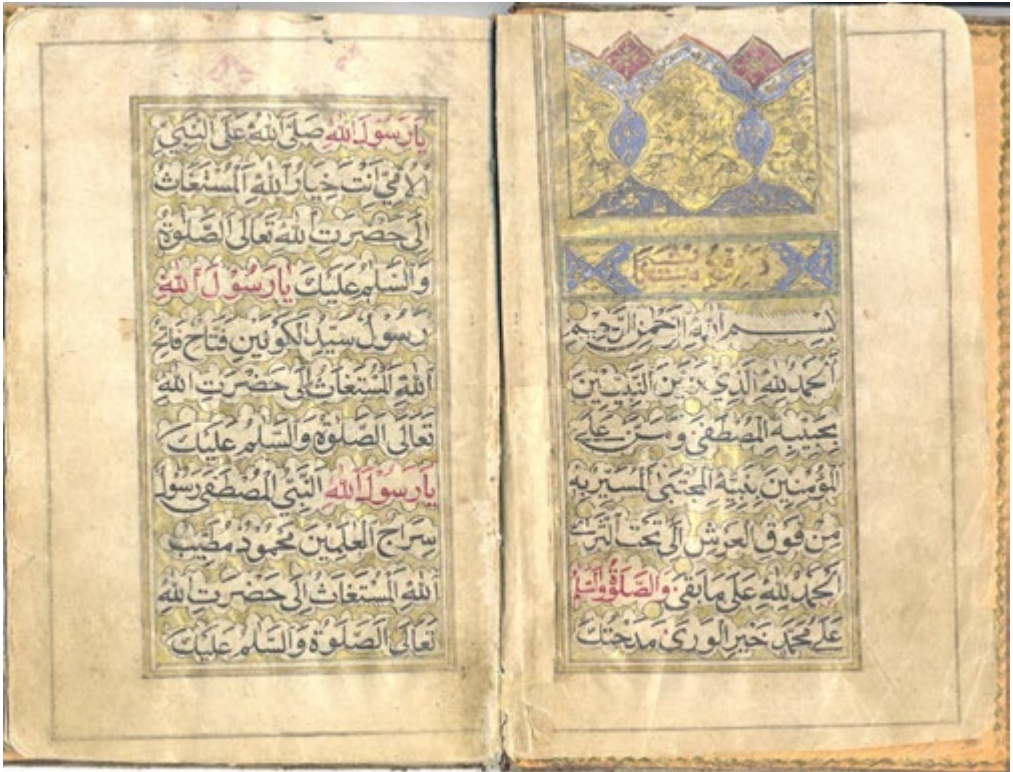 درود مستغاث
بسم الله الرحمن الرحيم
الحمد لله الذي زين النبيين
بحبيبه المصطفى ومن على
المؤمنين بنبيه المجتبى المسير به
من فوق العرش الى تحت الثرى
الحمد لله على ما بقى والصلوة والسلم
على محمد خير الورى مدحتك
يا رسول الله صلى الله على النبي
الامي انت خيار الله المستغاث
الى حضرت الله تعالى الصلوة
والسلم عليك يا رسول الله
رسول سيد الكونين فتاح فاتح
الله المستغاث الى حضرت الله
تعالى الصلوة والسلم عليك
يا رسول الله النبي المصطفى رسول
سراج العلمين محمود مطيب
الله المستغاث الى حضرت الله
تعالى الصلوة والسلم عليك